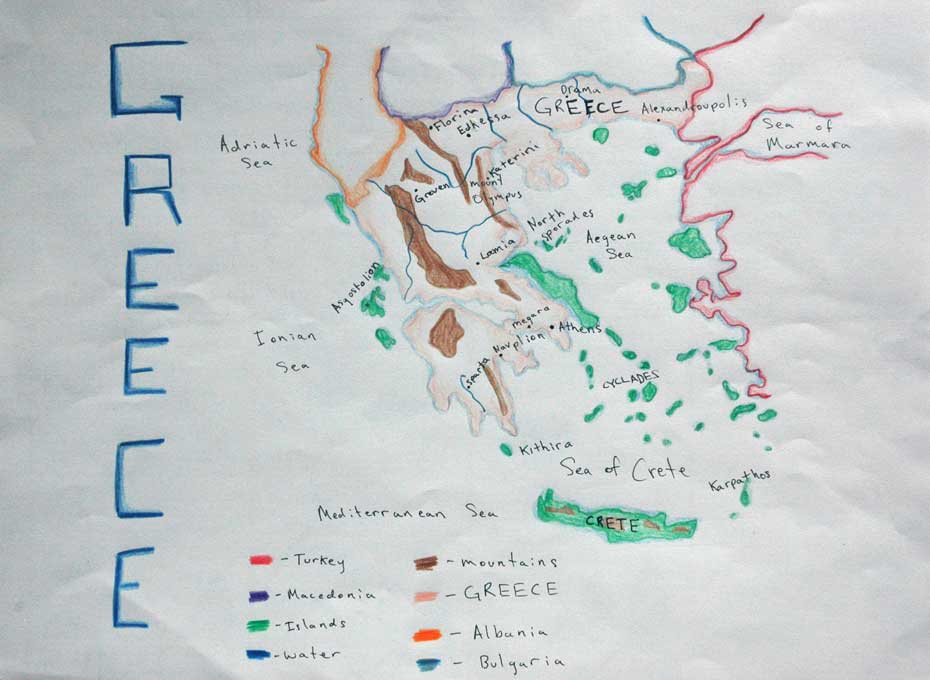 GREECE
Drama
GREECE
Alexandroupolis
Florina
Edhessa
Adriatic
Sea
Sea of
Marmara
Katerini
Mount
Olympus
Greven
North
Sporades
Aegean
Sea
Lamia
Asgostolion
Ionian
Sea
megara
Athens
Navplion
Sparta
CYCLADES
Kithira
Sea of Crete
Karpathos
Mediterranean Sea
CRETE
- Turkey
- Macedonia
- Islands
- water
- mountains
- GREECE
- Albania
- Bulgaria